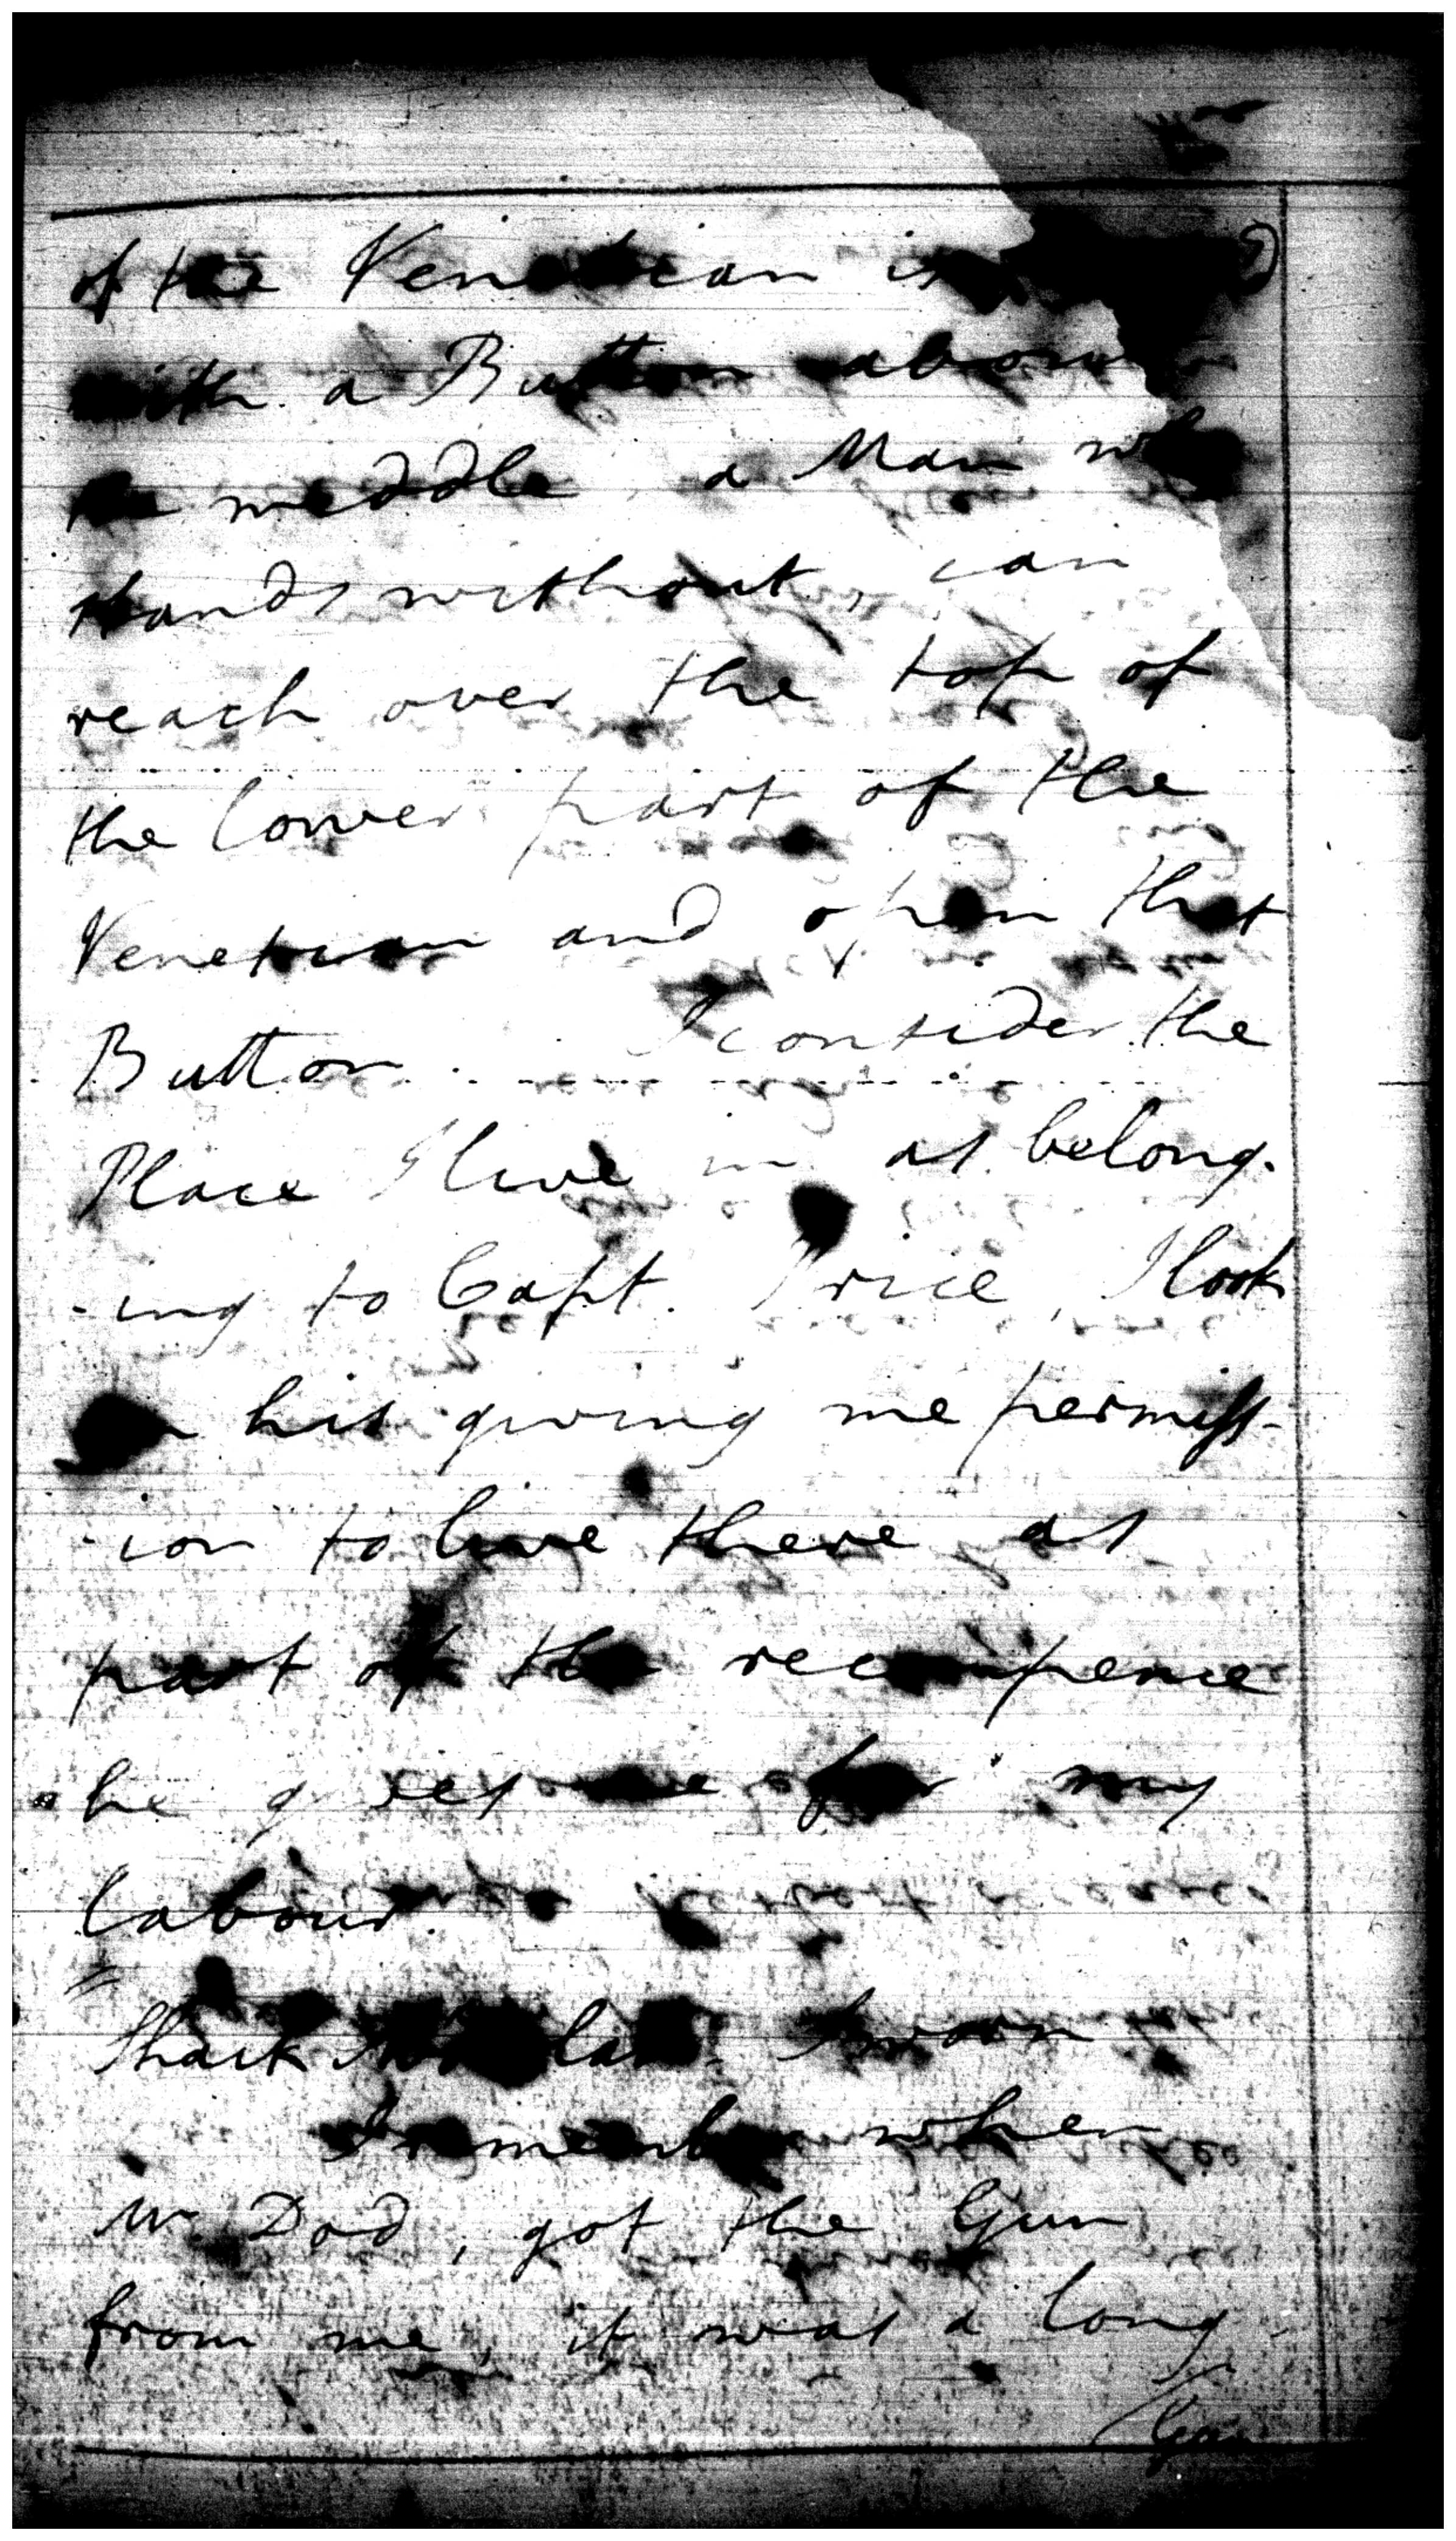 of the Venetian is
with a Button about
the meddle, a Man who
stands without, can
reach over the top of
the lower part of the
Venetian and open that
Button. I consider the
Place I live in as belong-
-ing to Capt. Price, I look
on his giving me permiss-
-ion to live there as
part of the recompence
he gives me for my
labour.
Sworn
I remember when
Mr. Dod, got the Gun
from me, it was a long
Gun